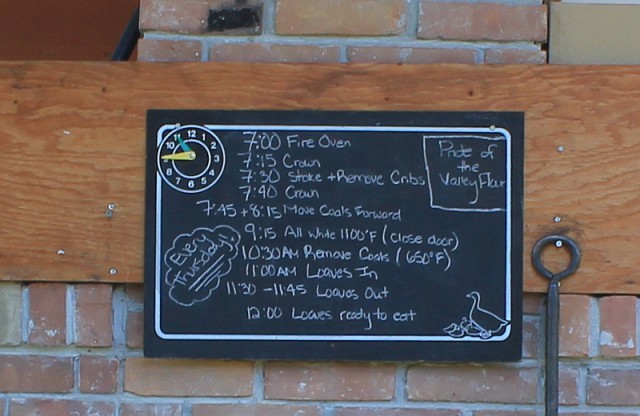 7:00 Fire Oven
7:15 Crown
7:30 Stoke + Remove Cribs
7:40 Crown
7:45 + 8:15 Move Coals Forward
9:15 All White 1100°F (close door)
10:30AM Remove Coals (650°F)
11:00AM Loaves In
11:30 - 11:45 Loaves Out
12:00 Loaves ready to eat
Pride of
the
Valley Flour
Every
Thursday
12
1
2
3
4
5
6
7
8
9
10
11